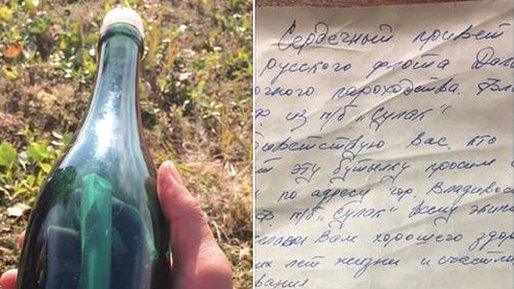 Сердечный привет
русского флота Даль
очного пароходства.
ф из п/б "Сулак"
ветствую Вас кто
т эту бутылку просим
и по адресу гор. Владивос
ф п/б "Сулак" всему экипа
желаем Вам хорошего здор
их лет жизни и счастли
вания